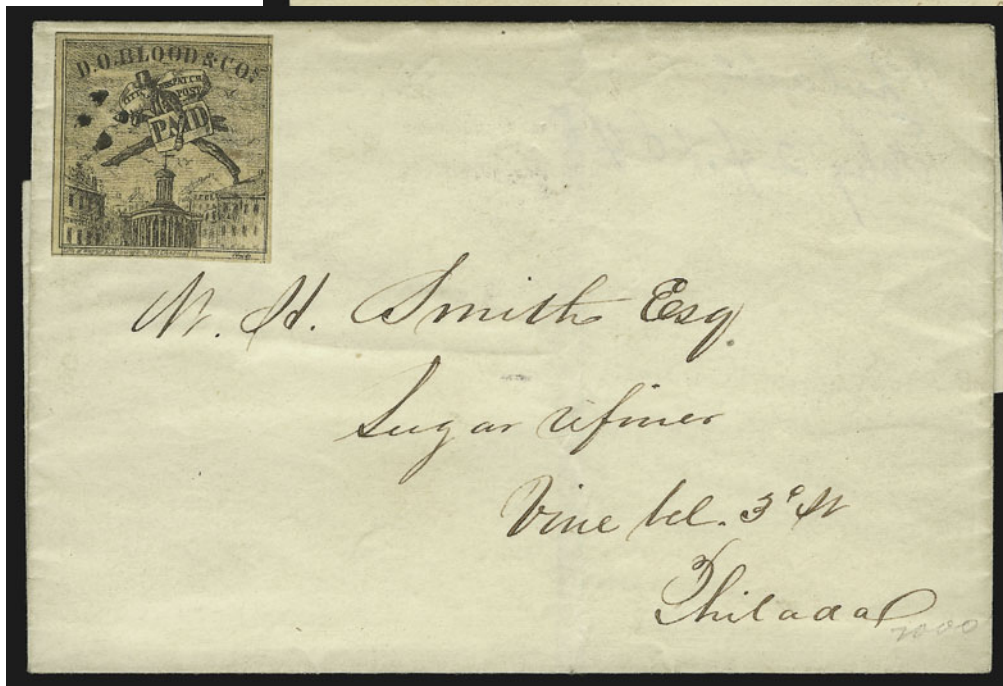 D.O.BLOOD & CO'S
CITY DESPATCH
POST
PAID
W. H. Smith Esq.
Sugar refiner
Vine bel. 3d St
Philada